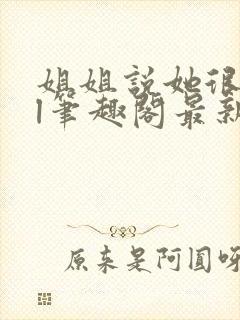 姐姐説她很
l筆趣閣最新
原来是阿圆呀